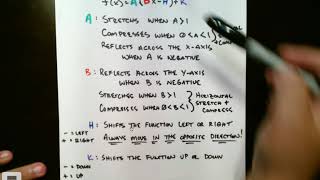 f(x)=A(Bx-H)+K
A: STRETCHES WHEN A>1
COMPRESSES WHEN 0<A<1
REFLECTS ACROSS THE X-AXIS
WHEN A IS NEGATIVE
B: REFLECTS ACROSS THE Y-AXIS
WHEN B IS NEGATIVE
STRETCHES WHEN B>1
COMPRESSES WHEN 0<B<1
HORIZONTAL
STRETCH +
COMPRESS
H: SHIFTS THE FUNCTION LEFT OR RIGHT
- = LEFT
+ = RIGHT
ALWAYS MOVE IN THE OPPOSITE DIRECTION!
K: SHIFTS THE FUNCTION UP OR DOWN
- = DOWN
+ = UP